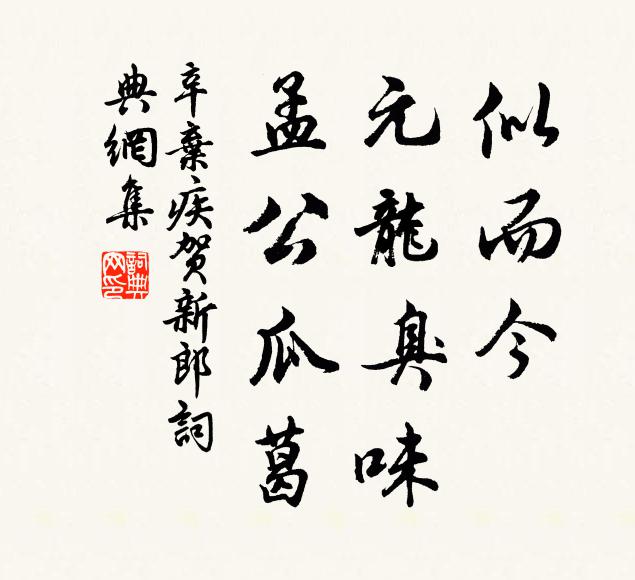 似而今
元龍臭味
孟公瓜葛
辛棄疾賀新郎詞
典網集
詞典
网印